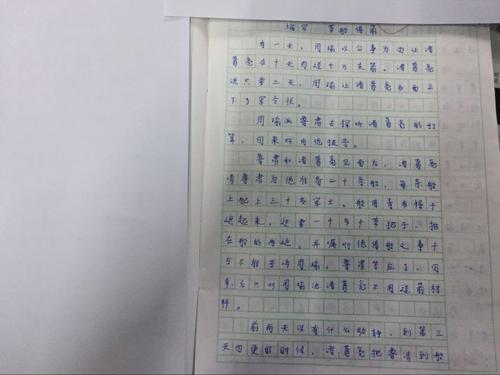 缩写 草船借箭
有一天，周瑜以公事为由让诸
葛亮在十天内造十万支箭。诸葛亮
说只要三天，周瑜让诸葛亮当面立
下了军令状。
周瑜派鲁肃去探听诸葛亮的打
算，回来时向他报告。
鲁肃和诸葛亮见面后，诸葛亮
请鲁肃为他准备二十条船，每条船
上配上三十名军士。船用青布幔子
遮起来，还要一千多个草把子，排
在船的两边。并嘱咐他借船之事千
万不能告诉周瑜。鲁肃答应了，回
来后只对周瑜说诸葛亮不用造箭材
料。
前两天没有什么动静，到第三
天四更的时候，诸葛亮把鲁肃请到船